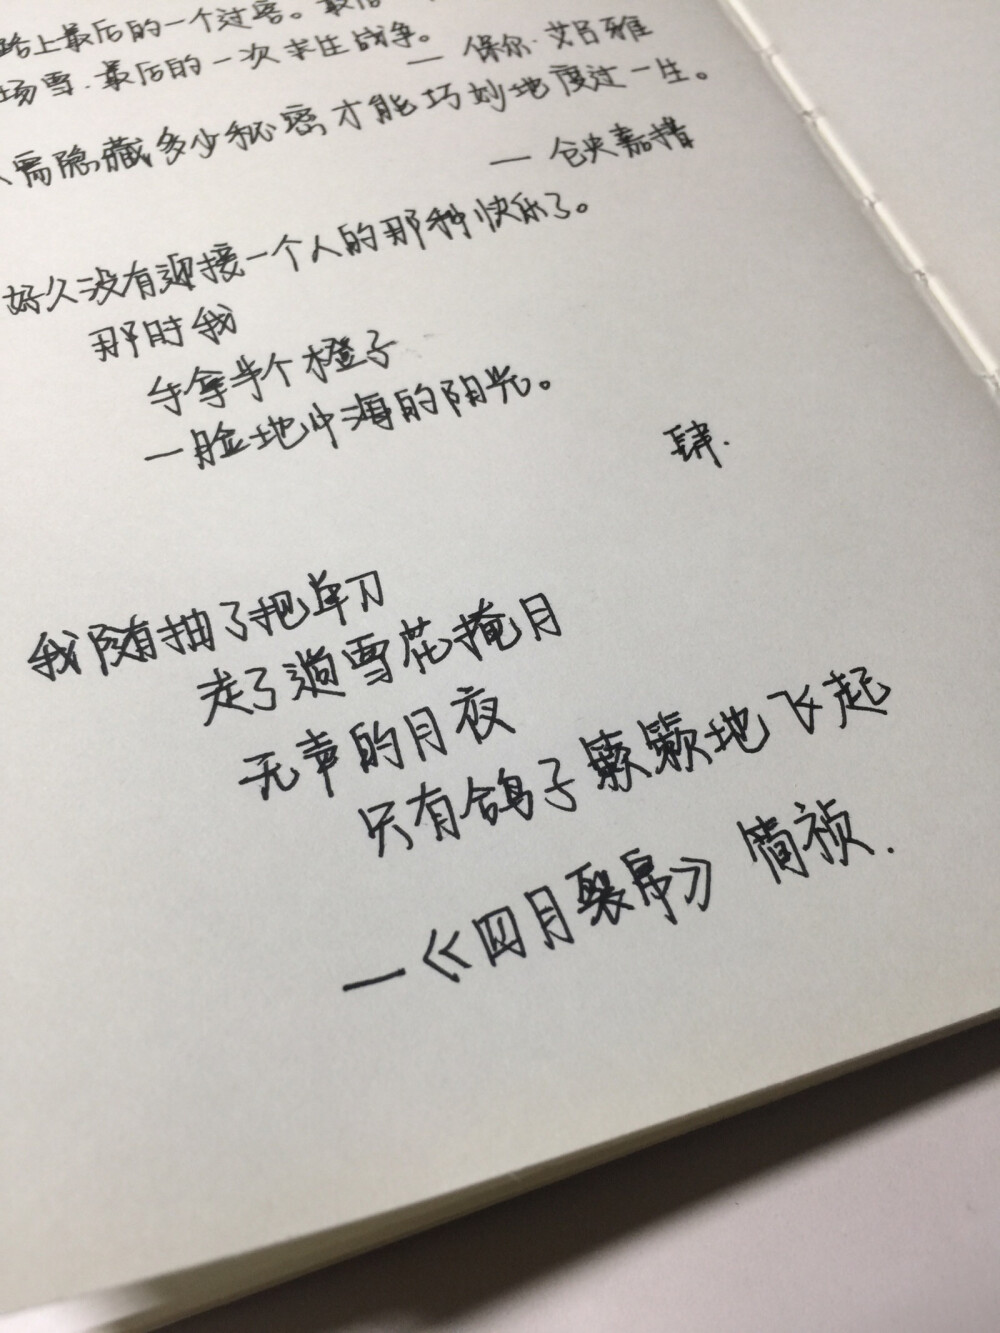 路上最后的一个过客。最后
场雪.最后的一次求生战争。
— 保尔·艾吕雅
人需隐藏多少秘密才能巧妙地度过一生。
— 仓央嘉措
好久没有迎接一个人的那种快乐了。
那时我
手拿半个橙子
一脸地中海的阳光。
肆.
我随抽了把单刀
走了趟雪花掩月
无声的月夜
只有鸽子簌簌地飞起
—《四月裂帛》 简祯.